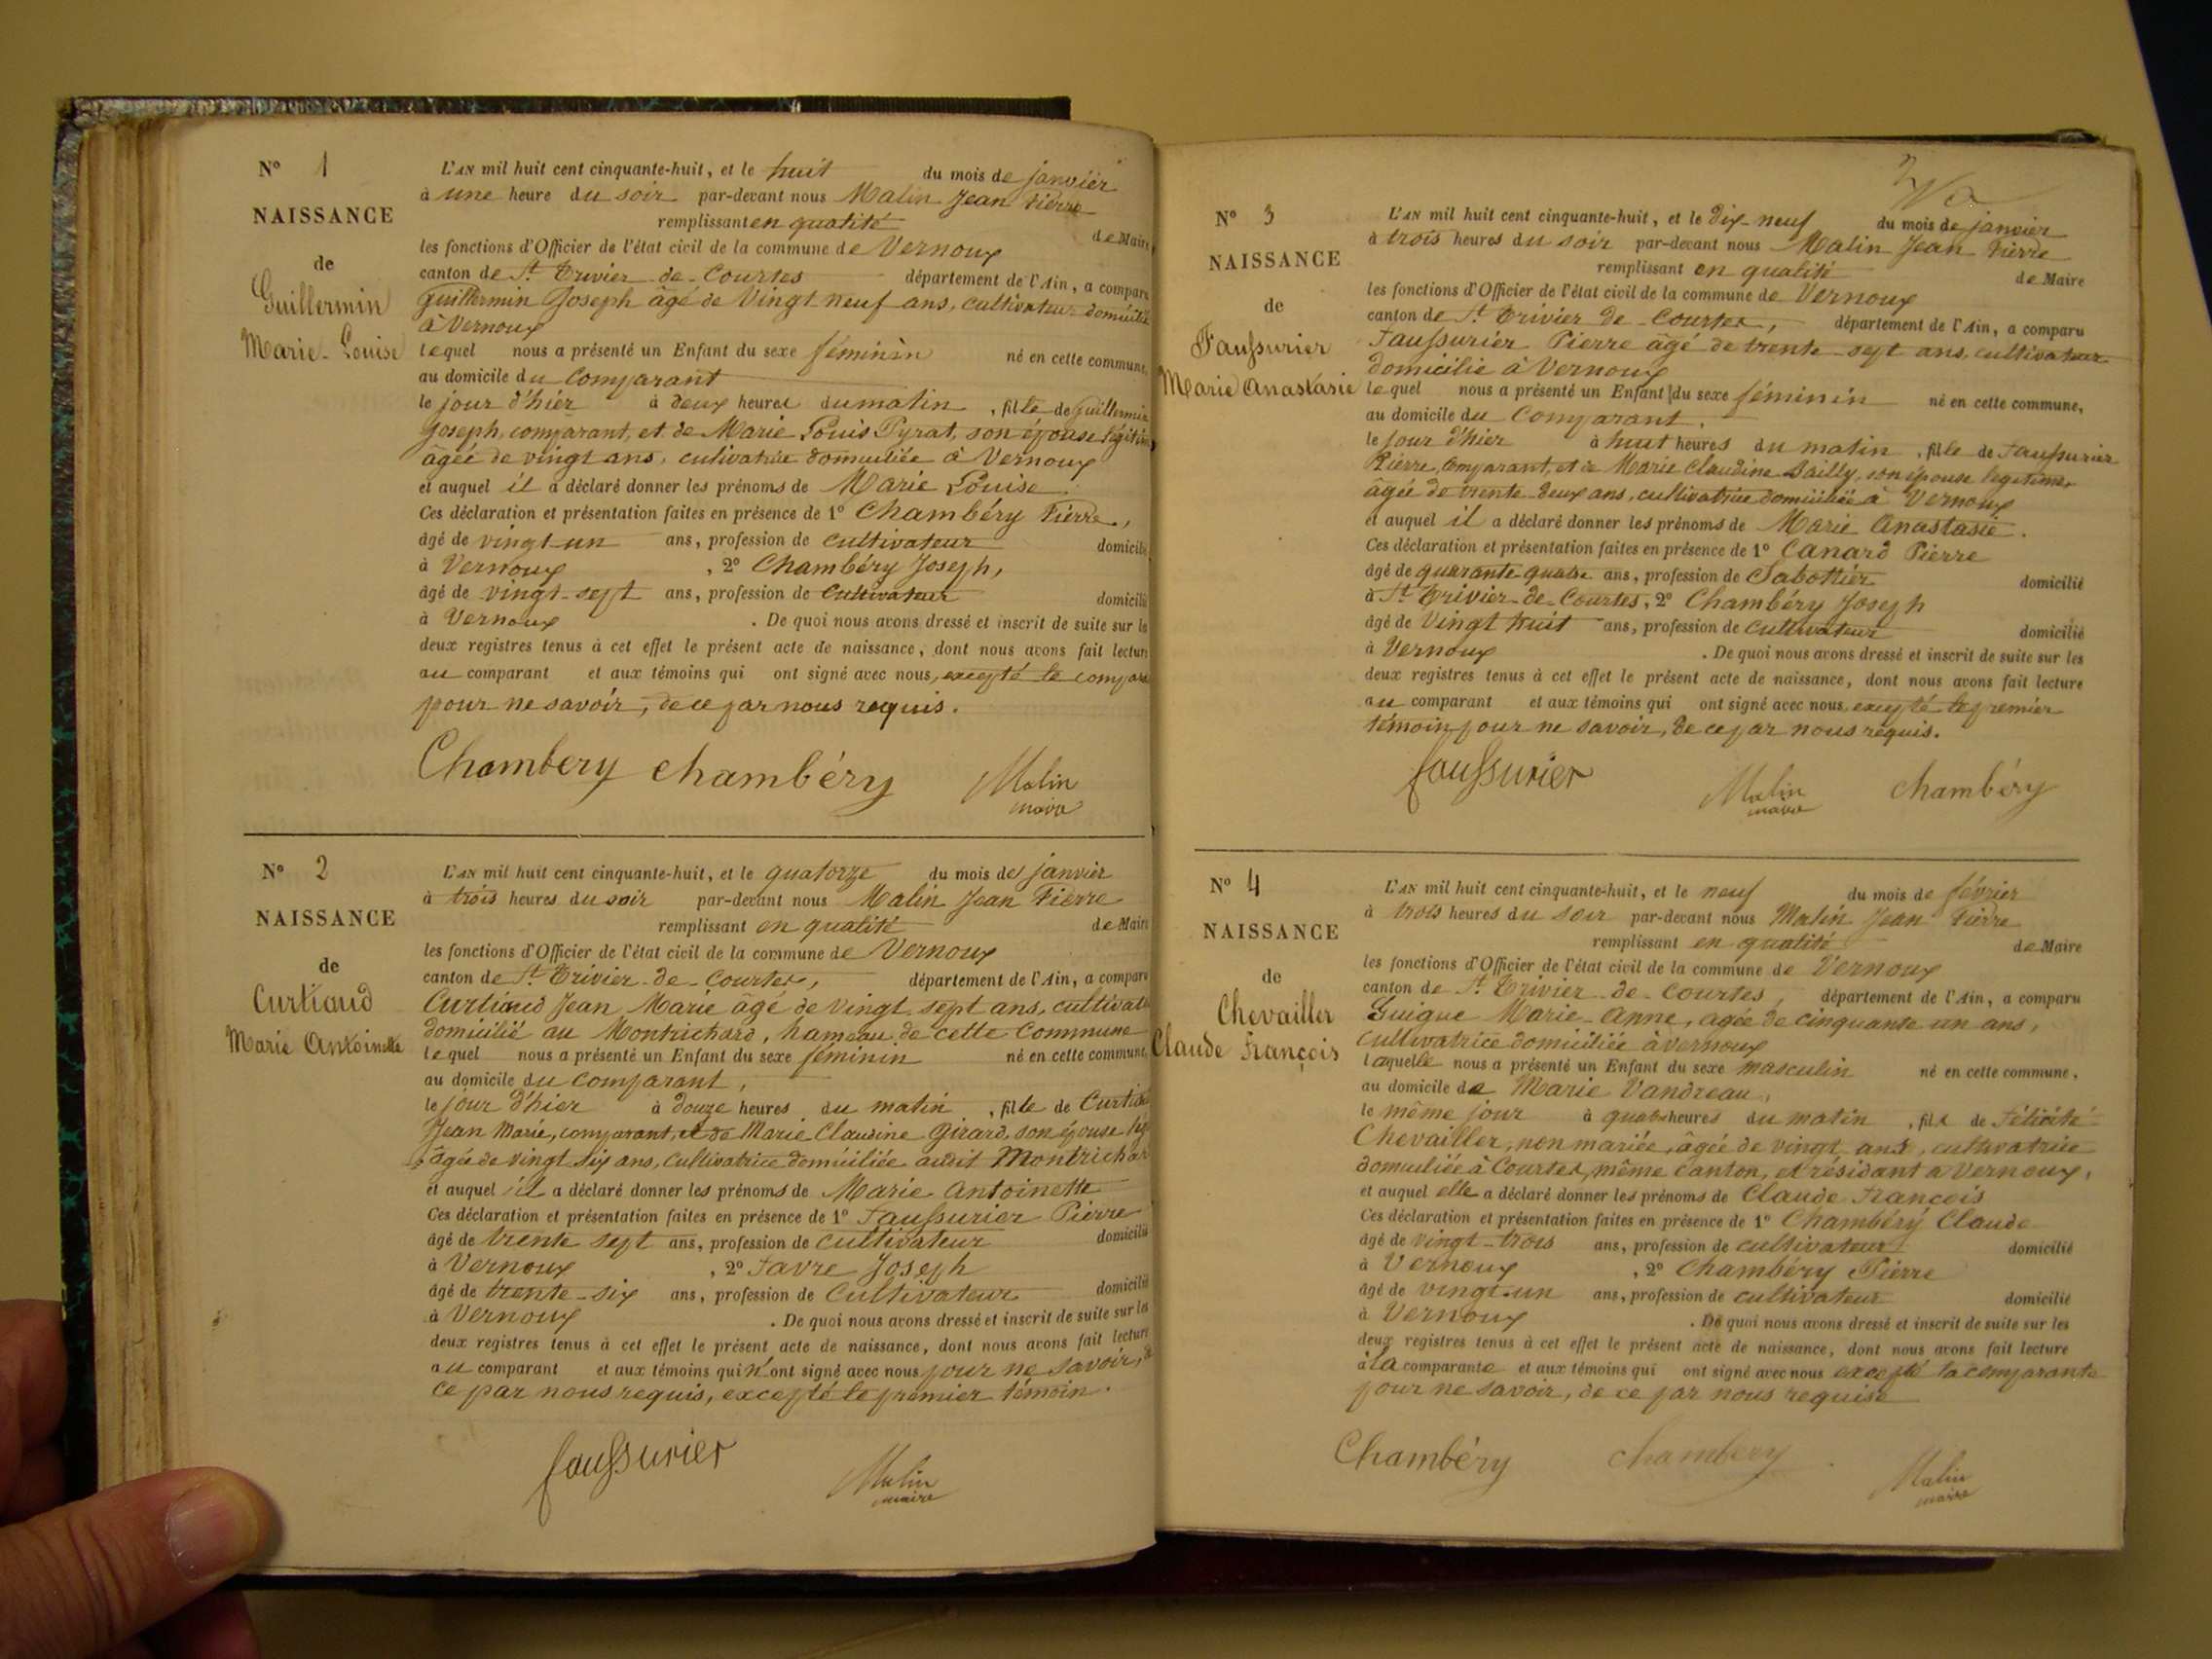 N° 1
NAISSANCE
de
Guillermin
Marie-Louise
L'AN mil huit cent cinquante-huit, et le huit du mois de janvier
à une heure du soir par-devant nous Malin Jean Pierre
remplissant en qualité de Maire
les fonctions d'Officier de l'état civil de la commune de Vernoux
canton de St Trivier-de-Courtes département de l'Ain, a comparu
Guillermin Joseph âgé de vingt neuf ans, cultivateur domicilié
à Vernoux
lequel nous a présenté un Enfant du sexe féminin né en cette commune,
au domicile du comparant
le jour d'hier à deux heures du matin, fille de Guillermin
Joseph, comparant, et de Marie Louis Pyrat, son épouse légitime
âgée de vingt ans, cultivatrice domiciliée à Vernoux
et auquel il a déclaré donner les prénoms de Marie Louise.
Ces déclaration et présentation faites en présence de 1° Chambéry Pierre,
âgé de vingt-un ans, profession de cultivateur domicilié
à Vernoux, 2° Chambéry Joseph,
âgé de vingt-sept ans, profession de cultivateur domicilié
à Vernoux. De quoi nous avons dressé et inscrit de suite sur les
deux registres tenus à cet effet le présent acte de naissance, dont nous avons fait lecture
au comparant et aux témoins qui ont signé avec nous, excepté le compara
pour ne savoir, de ce par nous requis.
Chambery chambéry Malin
maire
N° 2
NAISSANCE
de
Curtiaud
Marie Antoinette
L'AN mil huit cent cinquante-huit, et le quatorze du mois de janvier
à trois heures du soir par-devant nous Malin Jean Pierre
remplissant en qualité de Maire
les fonctions d'Officier de l'état civil de la commune de Vernoux
canton de St Trivier-de-Courtes, département de l'Ain, a comparu
Curtiaud Jean Marie âgé de vingt sept ans, cultivate
domicilié au Montrichard, hameau de cette commune
lequel nous a présenté un Enfant du sexe féminin né en cette commune,
au domicile du comparant,
le jour d'hier à douze heures du matin, fille de Curtiaud
Jean Marie, comparant, et de Marie Claudine Girard, son épouse lég
âgée de vingt six ans, cultivatrice domiciliée audit Montrichar
et auquel il a déclaré donner les prénoms de Marie Antoinette
Ces déclaration et présentation faites en présence de 1° Faussurier Pierre
âgé de trente sept ans, profession de cultivateur domicilié
à Vernoux, 2° Favre Joseph
âgé de trente-six ans, profession de cultivateur domicilié
à Vernoux. De quoi nous avons dressé et inscrit de suite sur les
deux registres tenus à cet effet le présent acte de naissance, dont nous avons fait lecture
au comparant et aux témoins qui n'ont signé avec nous pour ne savoir, de
ce par nous requis, excepté le premier témoin.
faussurier Malin
maire
N° 3
NAISSANCE
de
Faussurier
Marie Anastasie
L'AN mil huit cent cinquante-huit, et le dix-neuf du mois de janvier
à trois heures du soir par-devant nous Malin Jean Pierre
remplissant en qualité de Maire
les fonctions d'Officier de l'état civil de la commune de Vernoux
canton de St Trivier de-Courtes, département de l'Ain, a comparu
Faussurier Pierre âgé de trente-sept ans, cultivateur
domicilié à Vernoux
lequel nous a présenté un Enfant du sexe féminin né en cette commune,
au domicile du comparant.
le jour d'hier à huit heures du matin, fille de Faussurier
Pierre, comparant, et de Marie Claudine Bailly, son épouse légitime,
âgée de trente-deux ans, cultivatrice domiciliée à Vernoux
et auquel il a déclaré donner les prénoms de Marie Anastasie.
Ces déclaration et présentation faites en présence de 1° Canard Pierre
âgé de quarante-quatre ans, profession de Sabottier domicilié
à St Trivier-de-Courtes, 2° Chambéry Joseph
âgé de vingt huit ans, profession de cultivateur domicilié
à Vernoux. De quoi nous avons dressé et inscrit de suite sur les
deux registres tenus à cet effet le présent acte de naissance, dont nous avons fait lecture
au comparant et aux témoins qui ont signé avec nous, excepté le premier
témoin pour ne savoir, de ce par nous requis.
faussurier Malin chambéry
maire
N° 4
NAISSANCE
de
Chevailler
Claude François
L'AN mil huit cent cinquante-huit, et le neuf du mois de février
à trois heures du soir par-devant nous Malin Jean Pierre
remplissant en qualité de Maire
les fonctions d'Officier de l'état civil de la commune de Vernoux
canton de St Trivier-de-Courtes, département de l'Ain, a comparu
Guigue Marie-Anne, agée de cinquante un ans,
cultivatrice domiciliée à Vernoux
laquelle nous a présenté un Enfant du sexe masculin né en cette commune,
au domicile de Marie Vandreau,
le même jour à quatre heures du matin, fils de Félicité
Chevailler, non mariée, âgée de vingt ans, cultivatrice
domiciliée à Courtes, même canton, et résidant à Vernoux,
et auquel elle a déclaré donner les prénoms de Claude François
Ces déclaration et présentation faites en présence de 1° Chambéry Claude
âgé de vingt-trois ans, profession de cultivateur domicilié
à Vernoux, 2° Chambéry Pierre
âgé de vingt-un ans, profession de cultivateur domicilié
à Vernoux. De quoi nous avons dressé et inscrit de suite sur les
deux registres tenus à cet effet le présent acte de naissance, dont nous avons fait lecture
à la comparante et aux témoins qui ont signé avec nous excepté la comparante
pour ne savoir, de ce par nous requise
Chambéry chambery Malin
maire